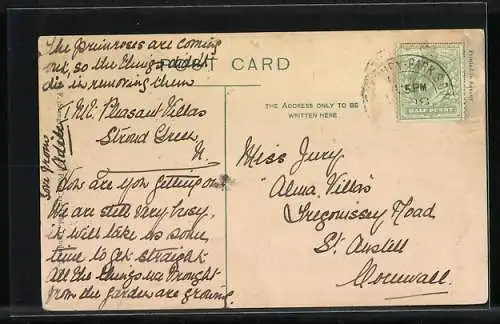 The primroses are coming
out, so the things didn't
die in removing them
POST CARD
THE ADDRESS ONLY TO BE
WRITTEN HERE
HALF PENNY
5 PM
PARK
Pleasant Villas
Stroud Green
N.
How are you getting on
We are still very busy,
it will take us some
time to get straight
All the things we brought
from the garden are growing
Miss Jury
"Alma Villas"
Tregonissey Road
St. Austell
Cornwall.